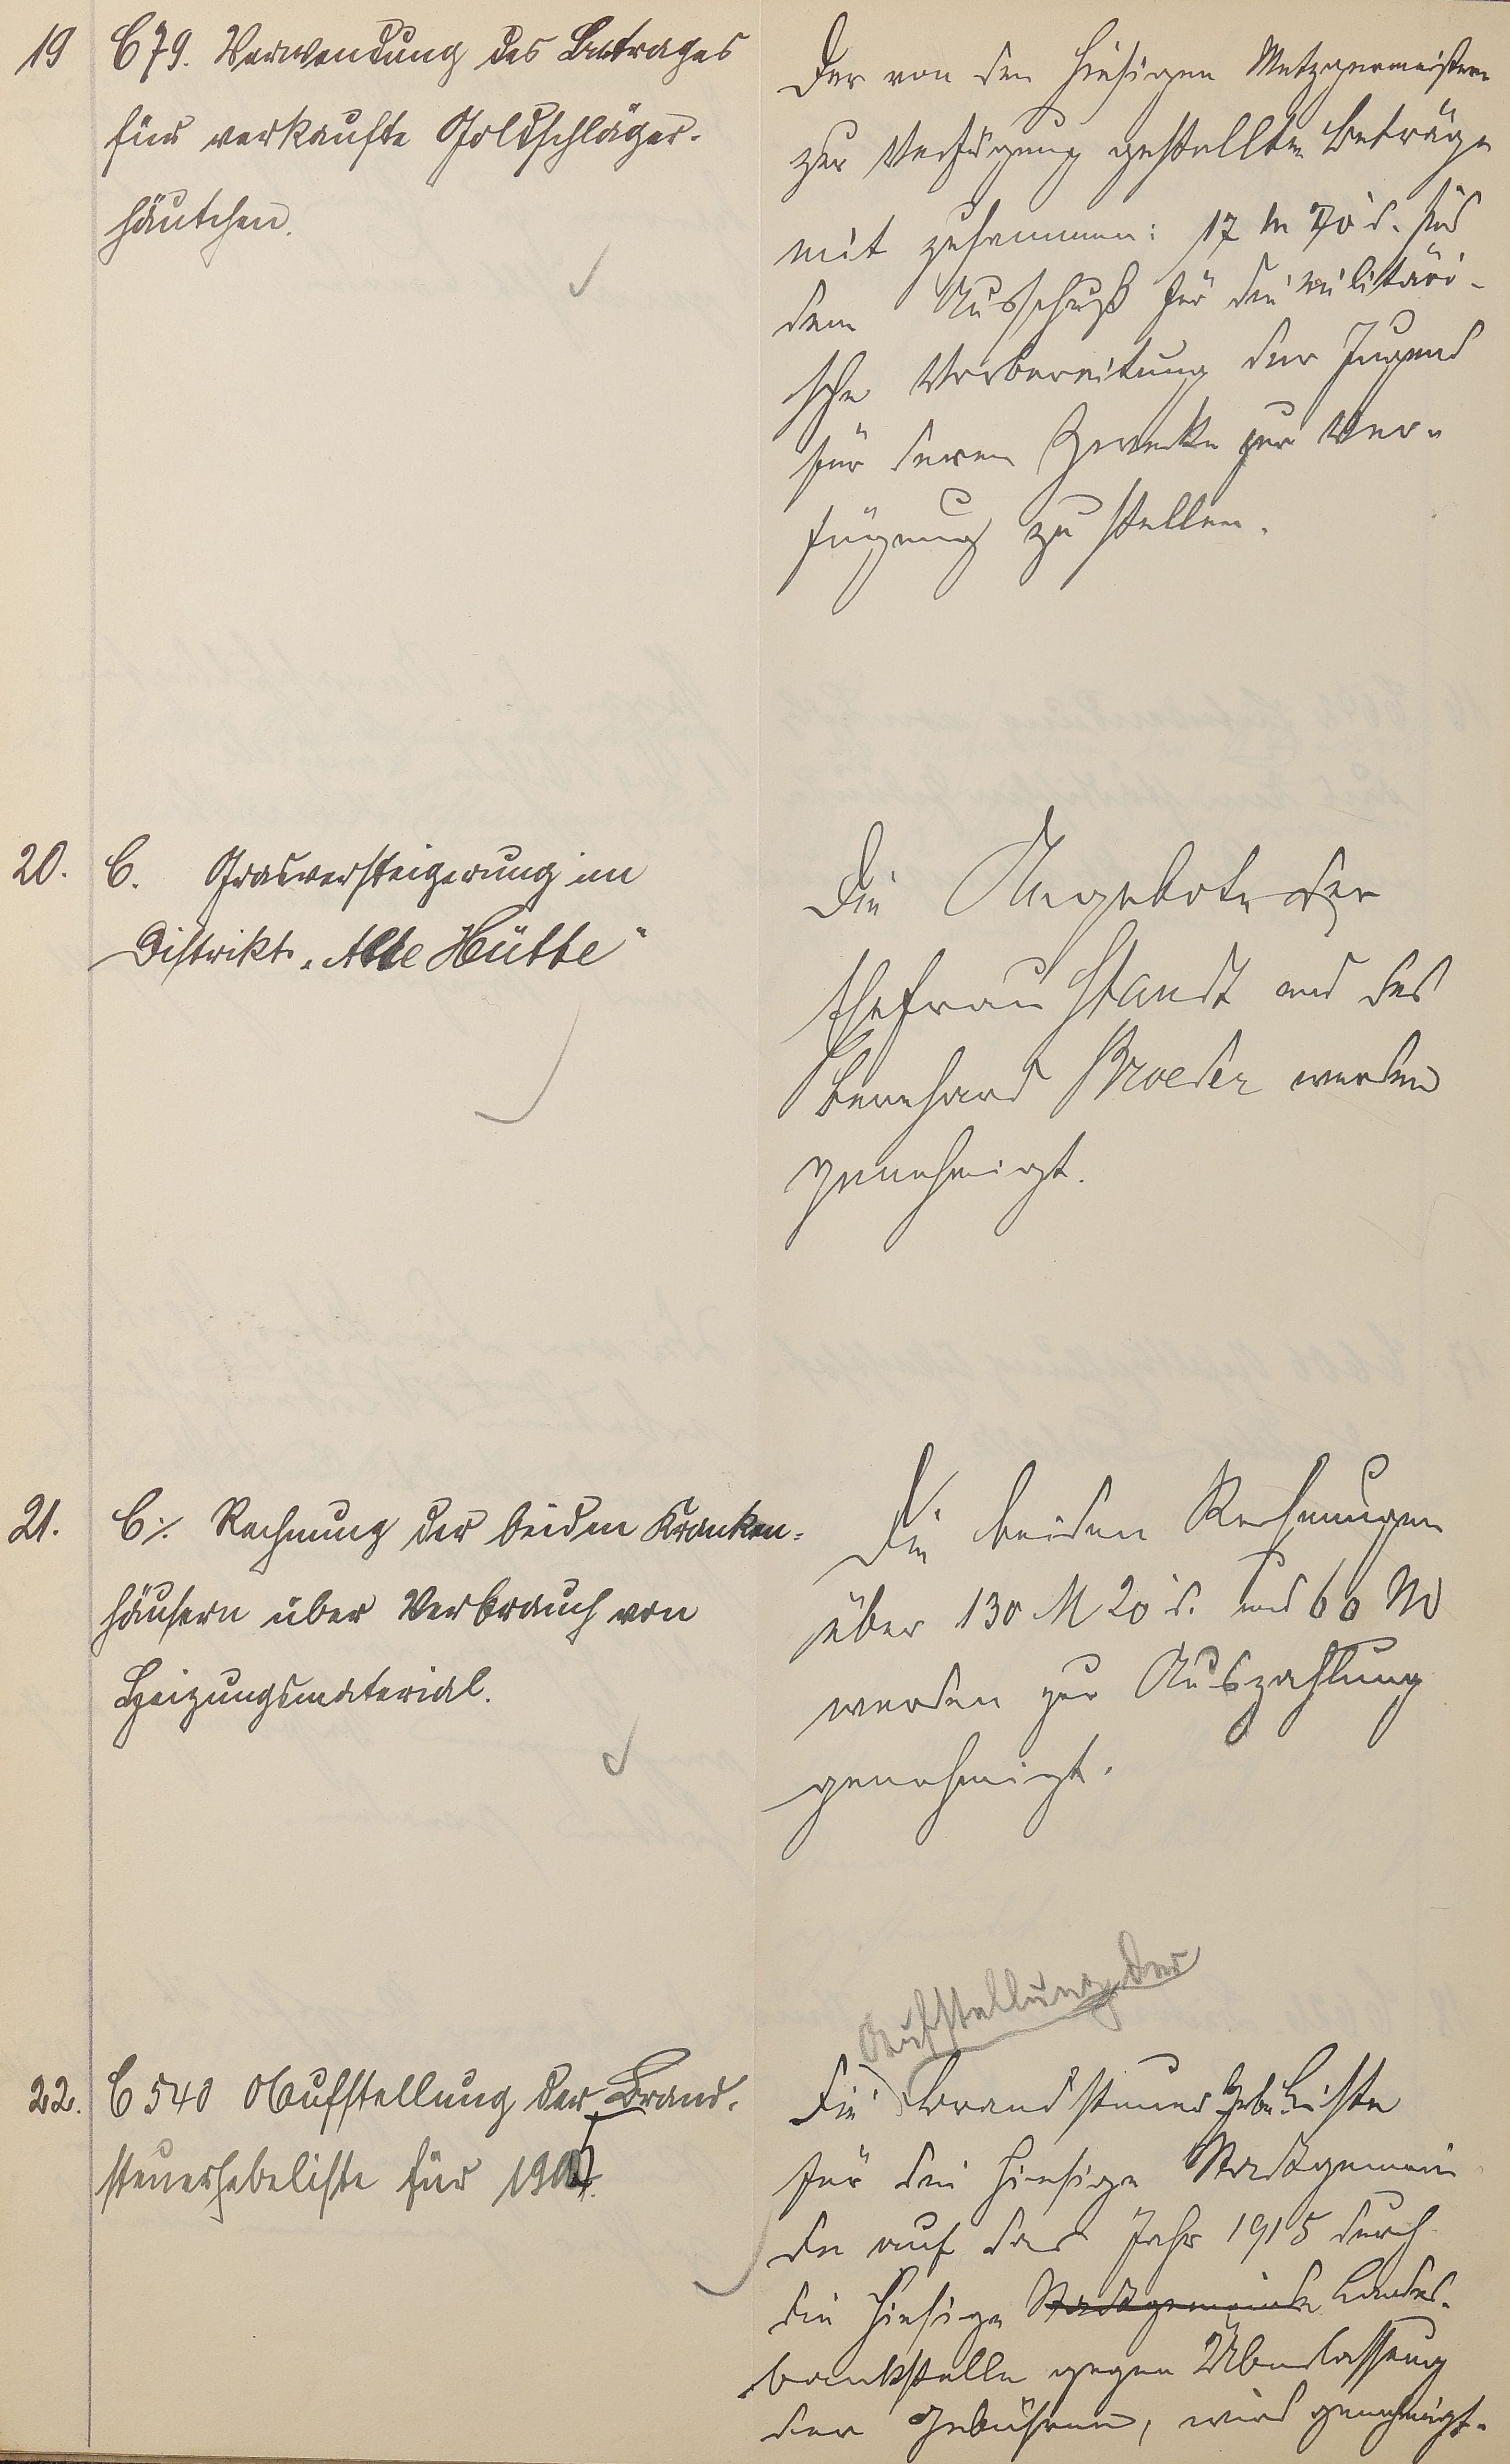 19 C 79. Verwendung des Betrages
für verkaufte Goldschläger-
häutchen.
Der von den hiesigen Metzgermeistern
zur Verfügung gestellten Beträge
mit zusammen: 17 M 70 d. sind
dem Ausschuß für die militäri-
sche Vorbereitung der Jugend
für deren Zwecke zur Ver-
fügung zu stellen.
20. C. Grasversteigerung im
Distrikt „Alte Hütte"
Die Angebote der
Ehefrau Standt und des
Bernhard Broeder werden
genehmigt.
21. C ⁒ Rechnung der beiden Kranken-
häusern über Verbrauch von
Heizungsmaterial.
Die beiden Rechnungen
über 130 M 20 d. und 60 M
werden zur Auszahlung
genehmigt.
Aufstellung der
22. C 540 Aufstellung der Brand-
steuerhebeliste für
Die Brandsteuer Hebe Liste
für die hiesige Stadtgemein
de auf das Jahr 1915 durch
die hiesige Stadtgemeinde Landes-
bankstelle gegen Überlassung
der Gebühren, wird genehmigt.